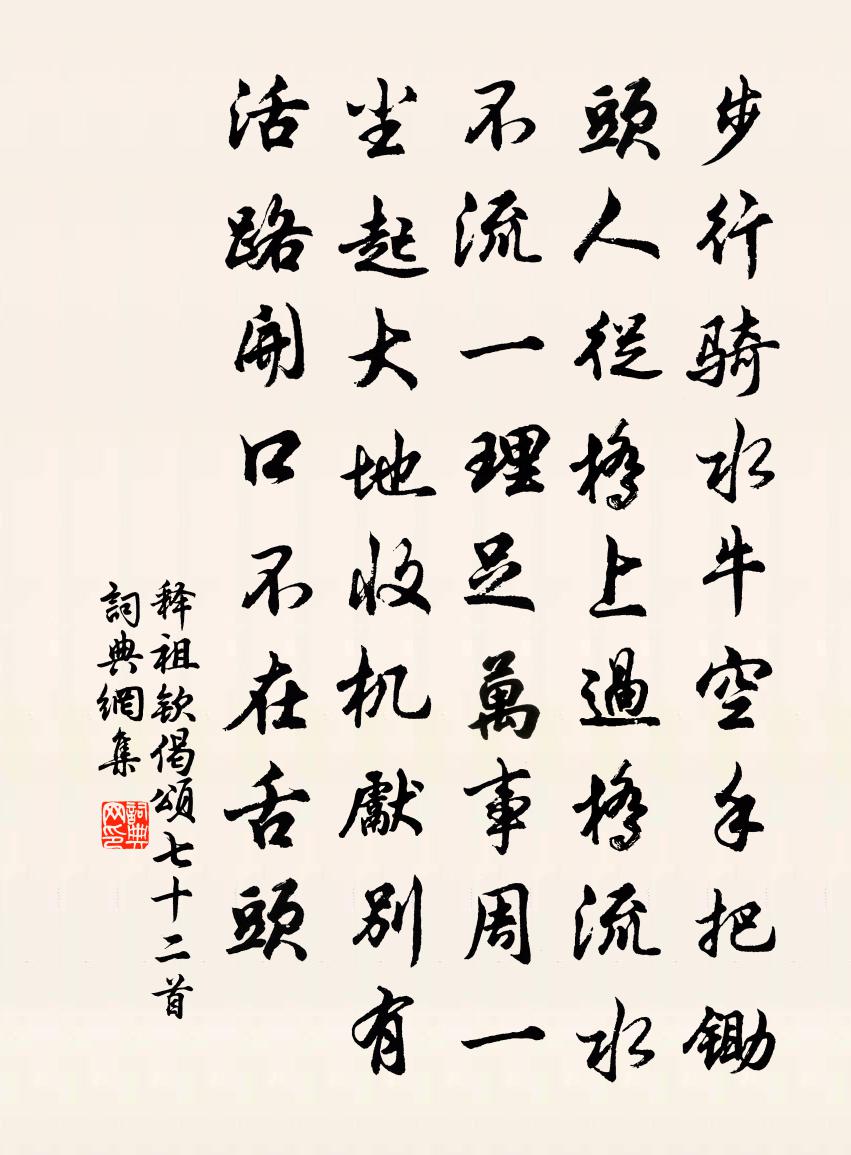 步行騎水牛空手把鋤
頭人從橋上過橋流水
不流一理足萬事周一
尘起大地收机獻別有
活路開口不在舌頭
释祖欽偈頌七十二首
詞典網集
詞典网印